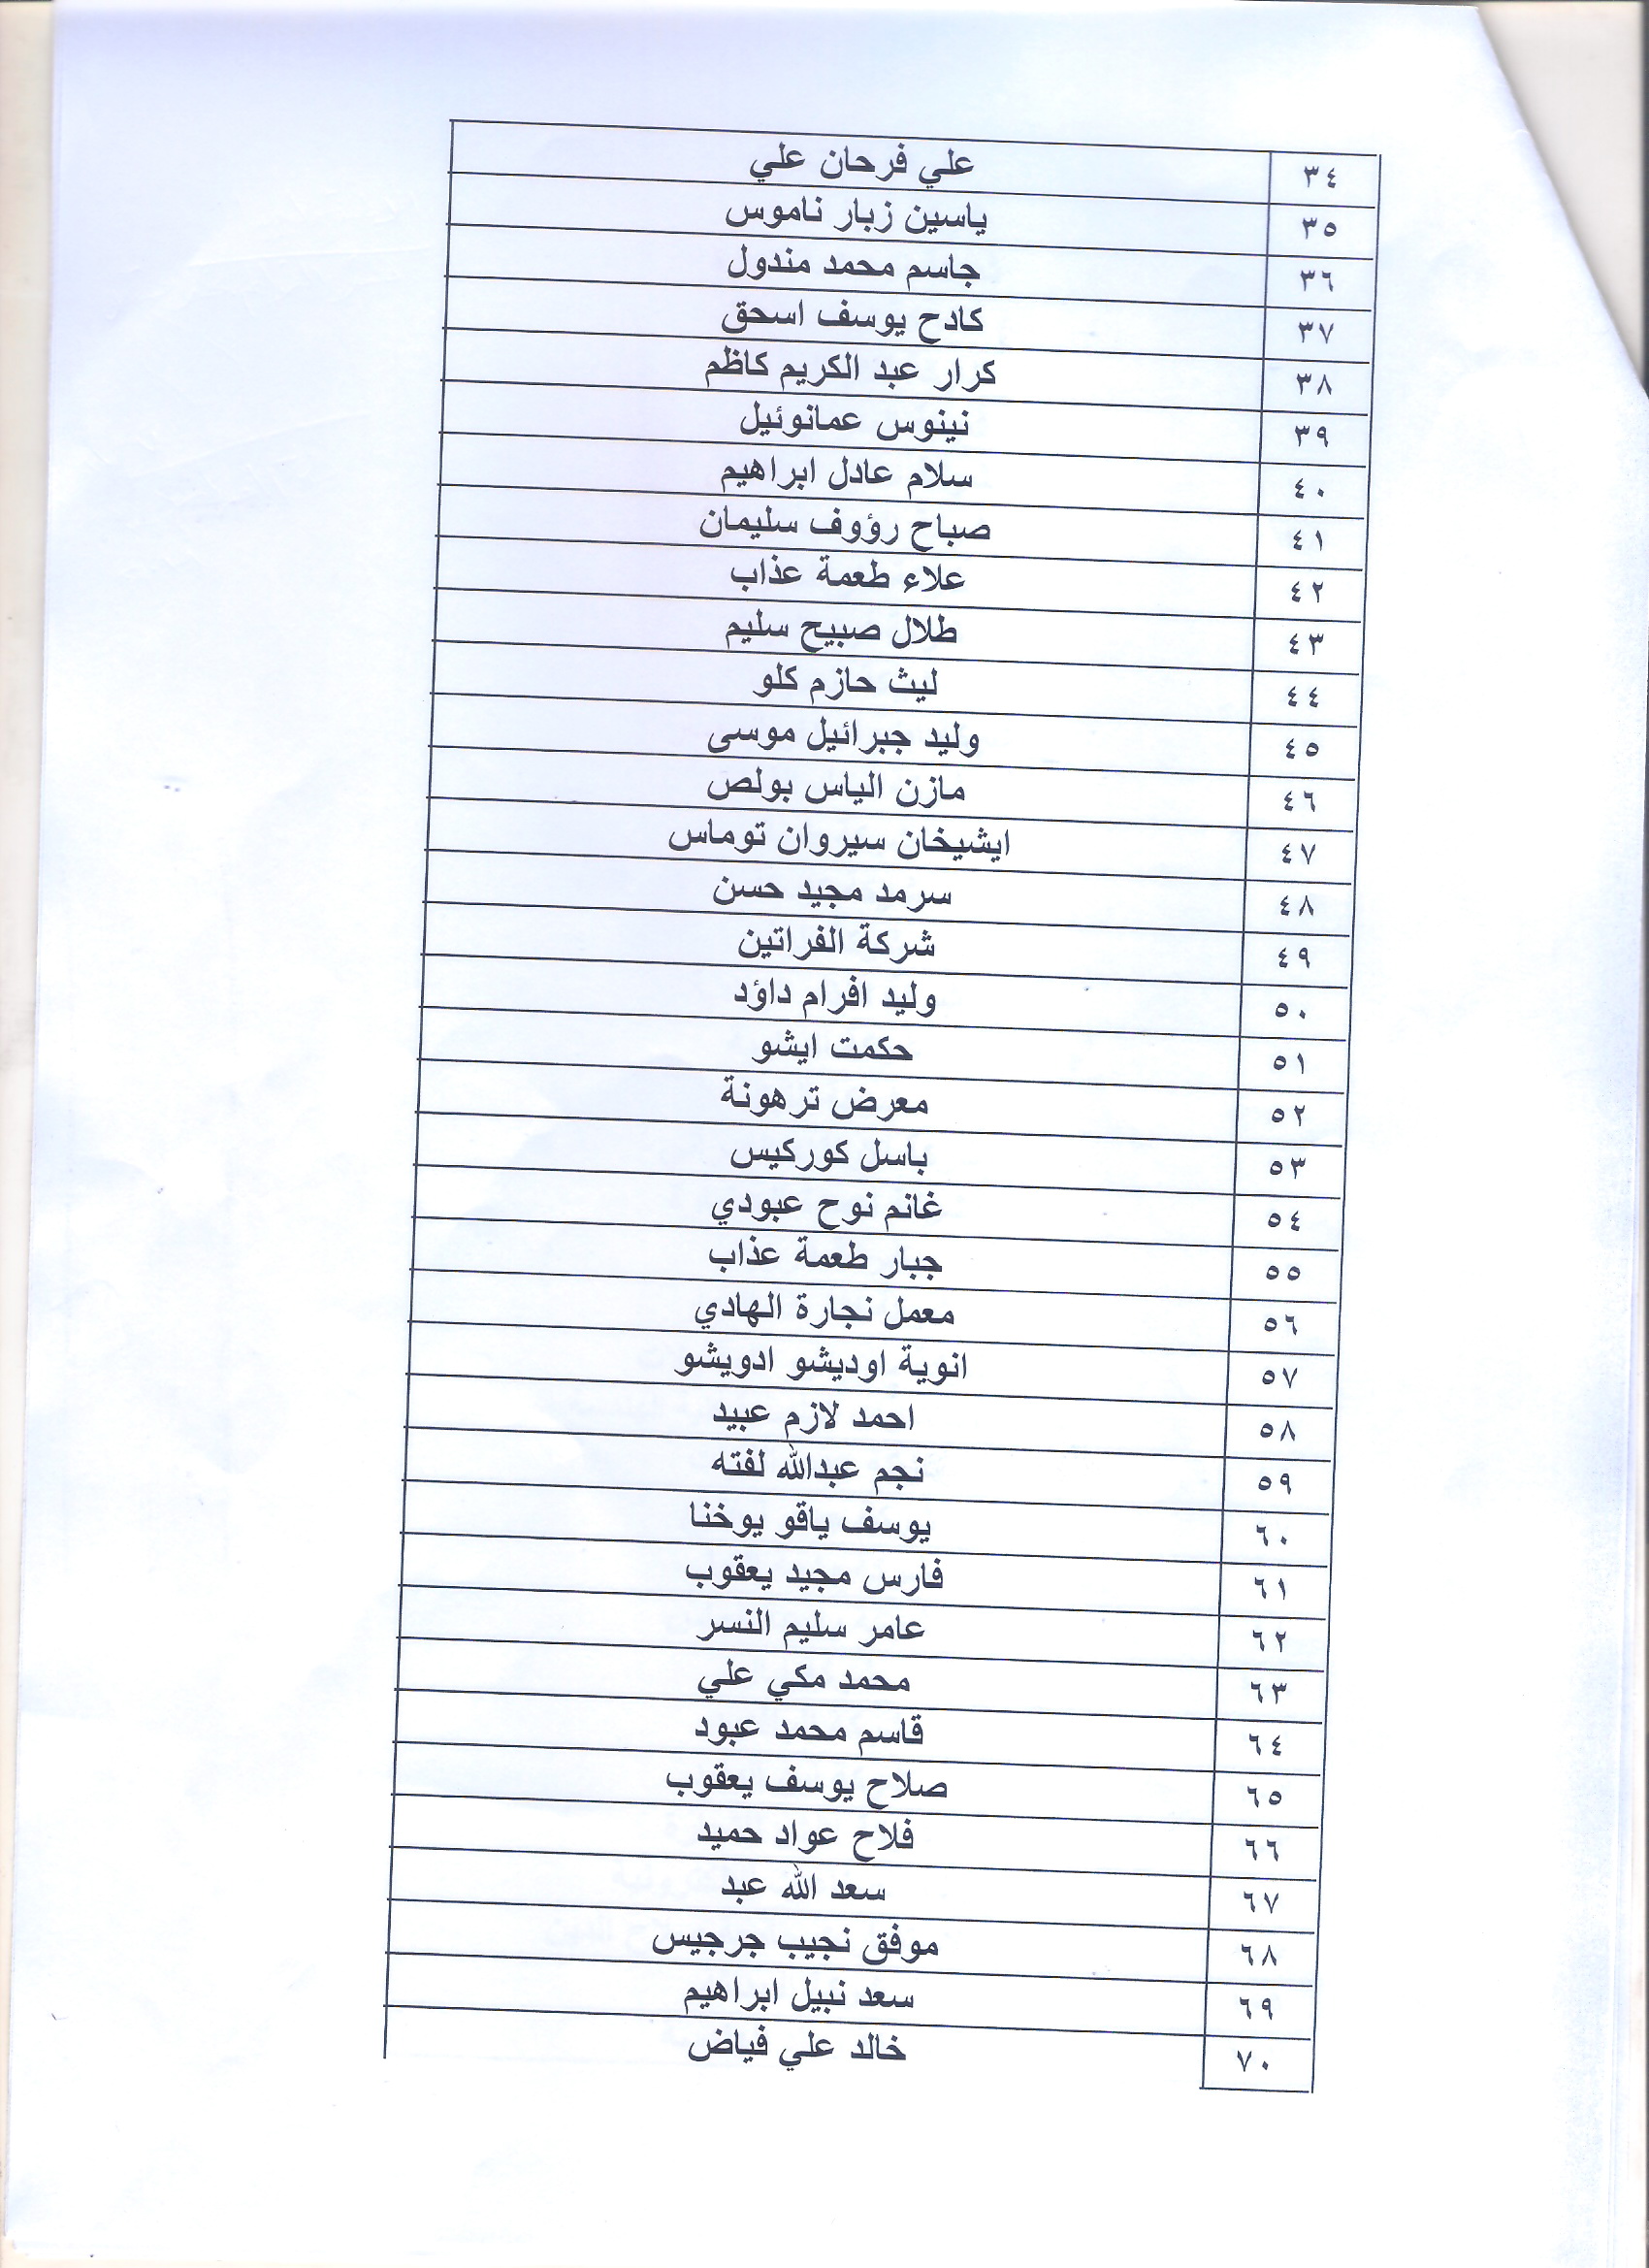 ٣٤ علي فرحان علي
٣٥ ياسين زبار ناموس
٣٦ جاسم محمد مندول
٣٧ كادح يوسف اسحق
٣٨ كرار عبد الكريم كاظم
٣٩ نينوس عمانوئيل
٤٠ سلام عادل ابراهيم
٤١ صباح رؤوف سليمان
٤٢ علاء طعمة عذاب
٤٣ طلال صبيح سليم
٤٤ ليث حازم كلو
٤٥ وليد جبرائيل موسى
٤٦ مازن الياس بولص
٤٧ ايشيخان سيروان توماس
٤٨ سرمد مجيد حسن
٤٩ شركة الفراتين
٥٠ وليد افرام داؤد
٥١ حكمت ايشو
٥٢ معرض ترهونة
٥٣ باسل كوركيس
٥٤ غانم نوح عبودي
٥٥ جبار طعمة عذاب
٥٦ معمل نجارة الهادي
٥٧ انوية اوديشو ادويشو
٥٨ احمد لازم عبيد
٥٩ نجم عبدالله لفته
٦٠ يوسف ياقو يوخنا
٦١ فارس مجيد يعقوب
٦٢ عامر سليم النسر
٦٣ محمد مكي علي
٦٤ قاسم محمد عبود
٦٥ صلاح يوسف يعقوب
٦٦ فلاح عواد حميد
٦٧ سعد الله عبد
٦٨ موفق نجيب جرجيس
٦٩ سعد نبيل ابراهيم
٧٠ خالد علي فياض